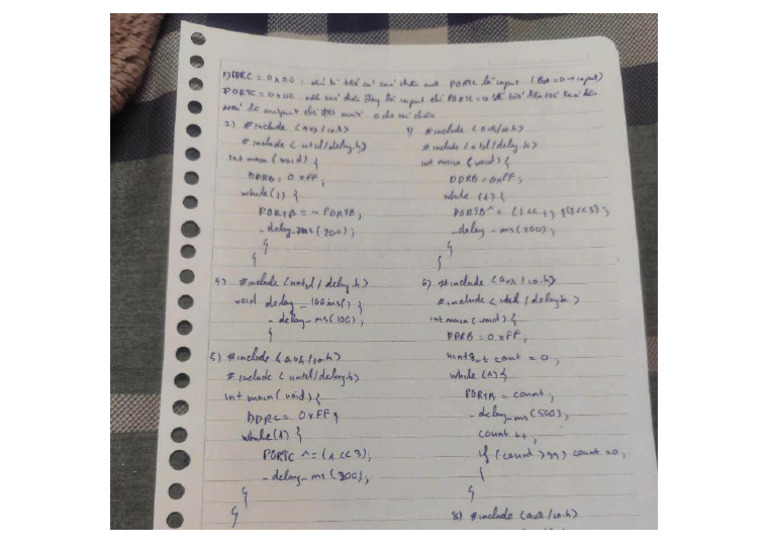 1) DDRC = 0x00 : chân PORTC là input (Bit = 0 → input)
PORTC = 0x00, là input thì PORTC = 0 sẽ
là output thì 0 cho các chân
2) #include <avr/io.h>
#include <util/delay.h>
int main (void) {
DDRB = 0xFF;
while(1) {
PORTB = ~ PORTB;
_delay_ms(200);
}
}
4) #include <util/delay.h>
void delay_100ms() {
_delay_ms(100);
}
5) #include <avr/io.h>
#include <util/delay.h>
int main (void) {
DDRC = 0xFF;
while(1) {
PORTC ^= (1<<3);
_delay_ms (300);
}
}
#include <avr/io.h>
#include <util/delay.h>
int main (void) {
DDRB = 0xFF;
while (1) {
PORTB ^= (1<<3);
_delay_ms(200);
}
}
6) #include <avr/io.h>
#include <util/delay.h>
int main (void) {
DDRB = 0xFF;
uint8_t count = 0;
while (1) {
PORTB = count;
_delay_ms(500);
count ++;
if (count > 99) count = 0;
}
}
8) #include <avr/io.h>